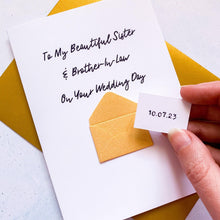 To My Beautiful Sister
& Brother-In-Law
On Your Wedding Day
10.07.23